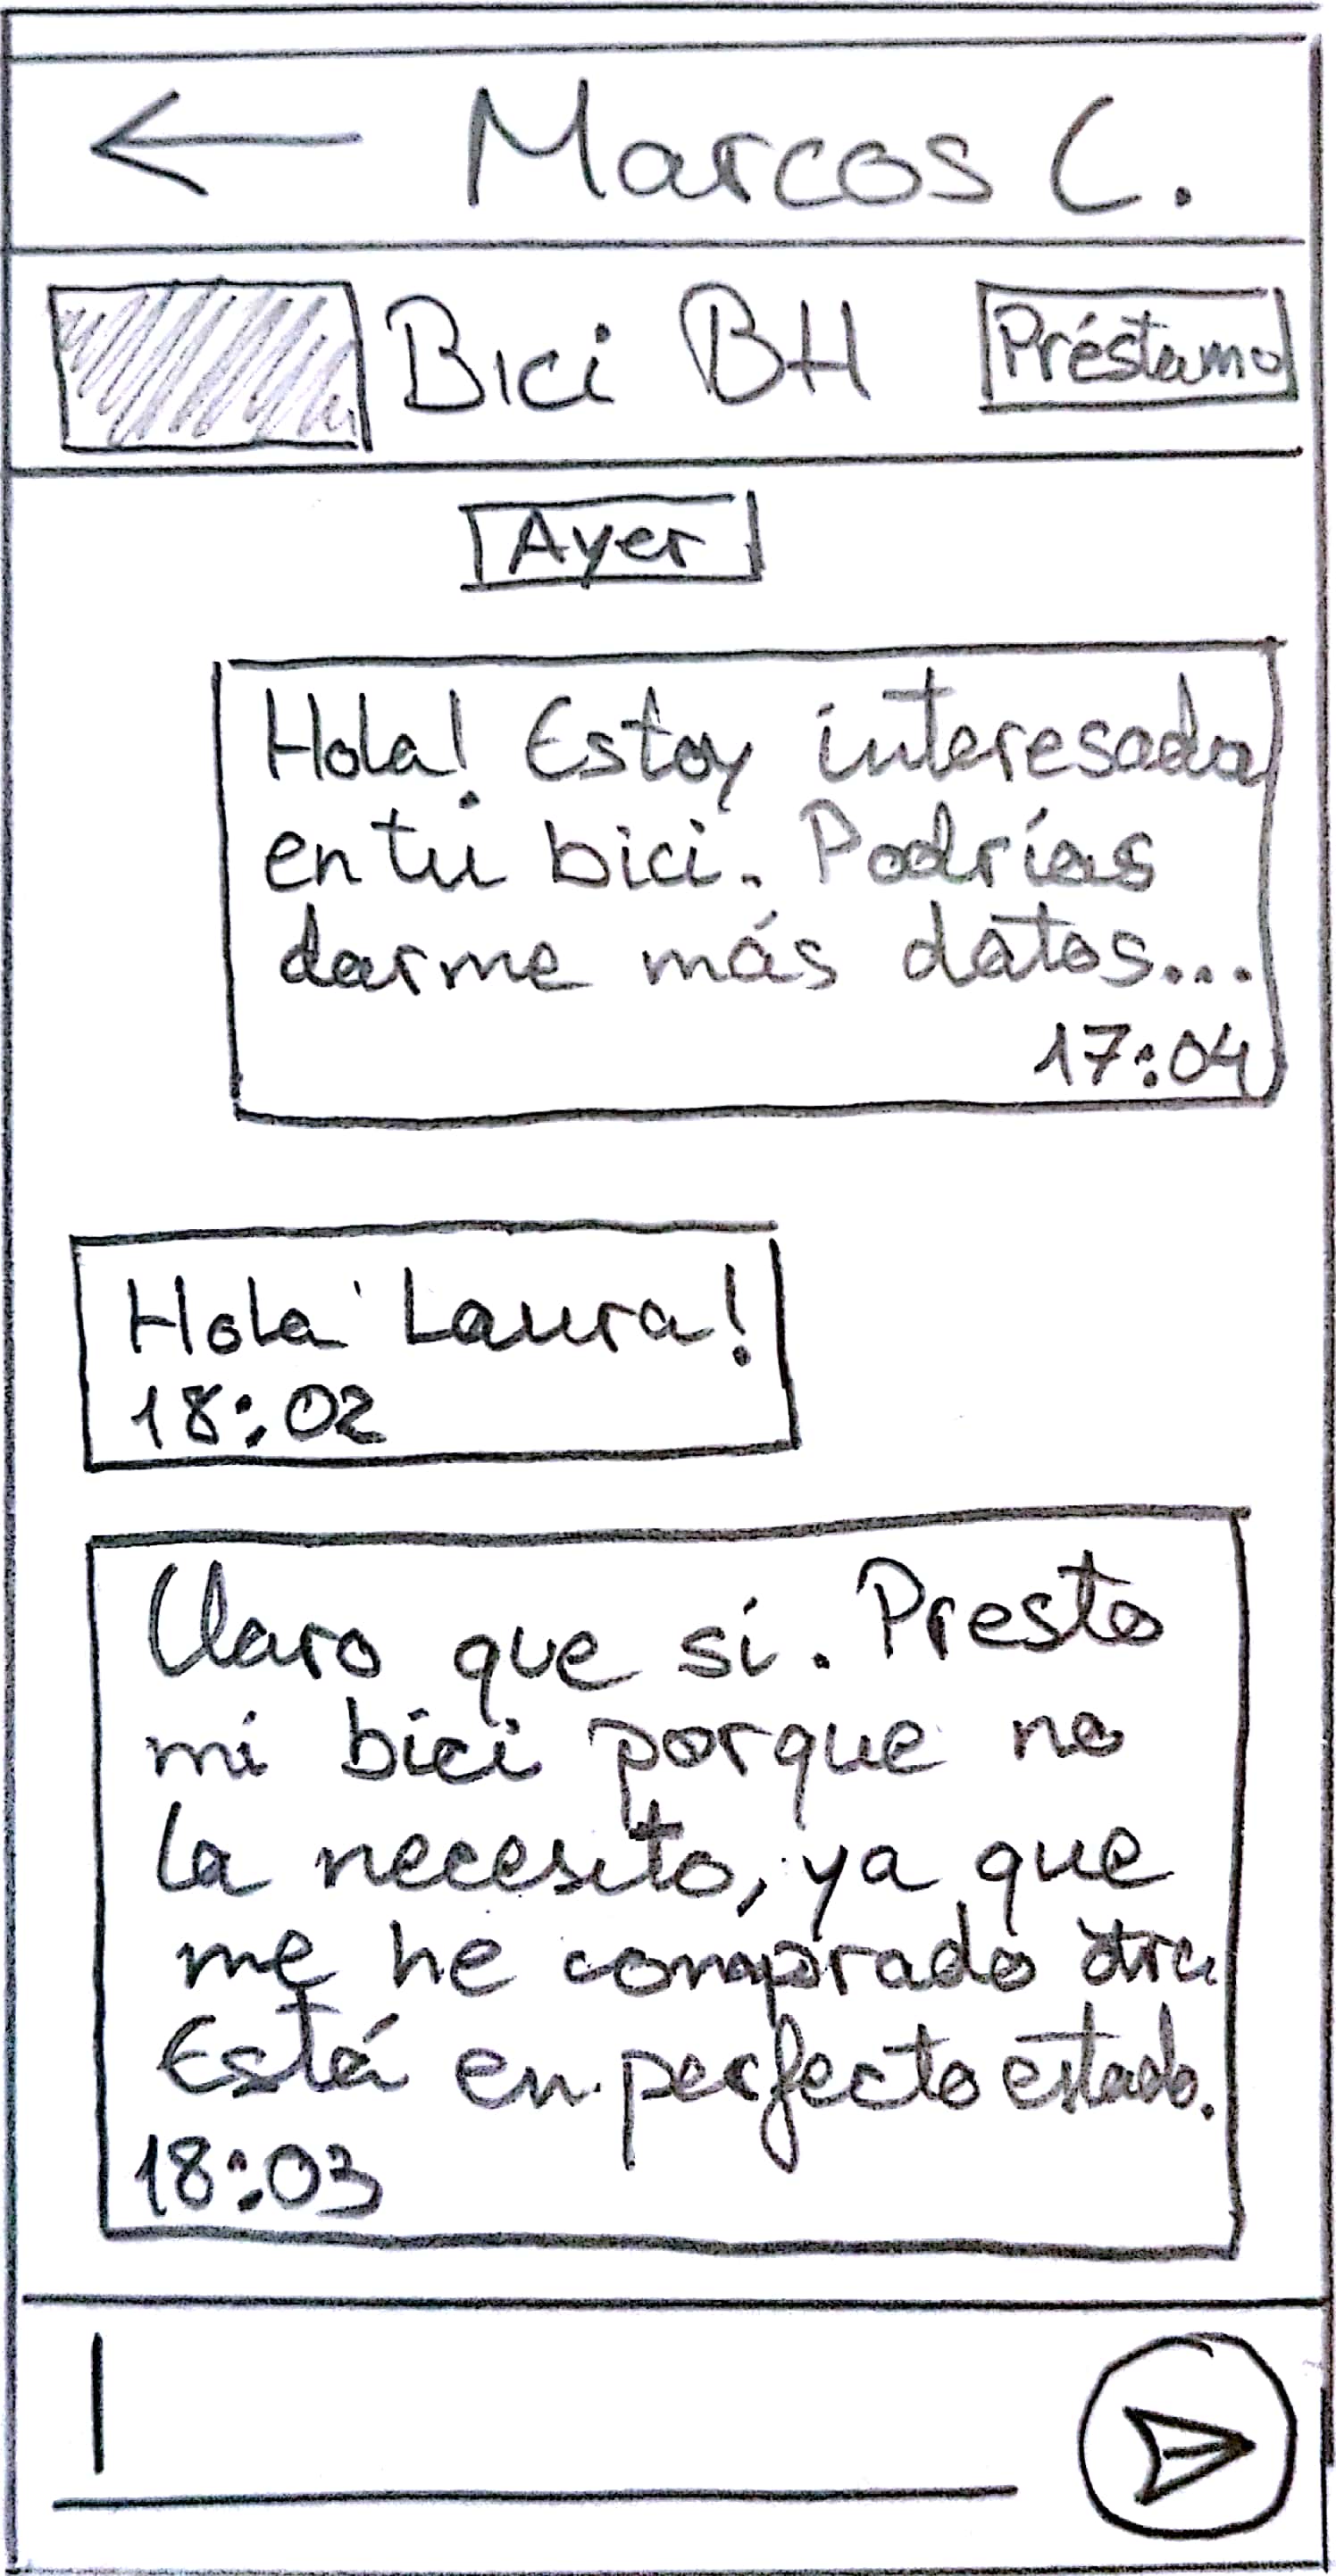 Marcos C.
Bici BH
Préstamo
Ayer
Hola! Estoy interesada
en tu bici. Podrías
darme más datos...
17:04
Hola Laura!
18:02
Claro que si. Presto
mi bici porque no
la necesito, ya que
me he comprado otra
Está en perfecto estado.
18:03